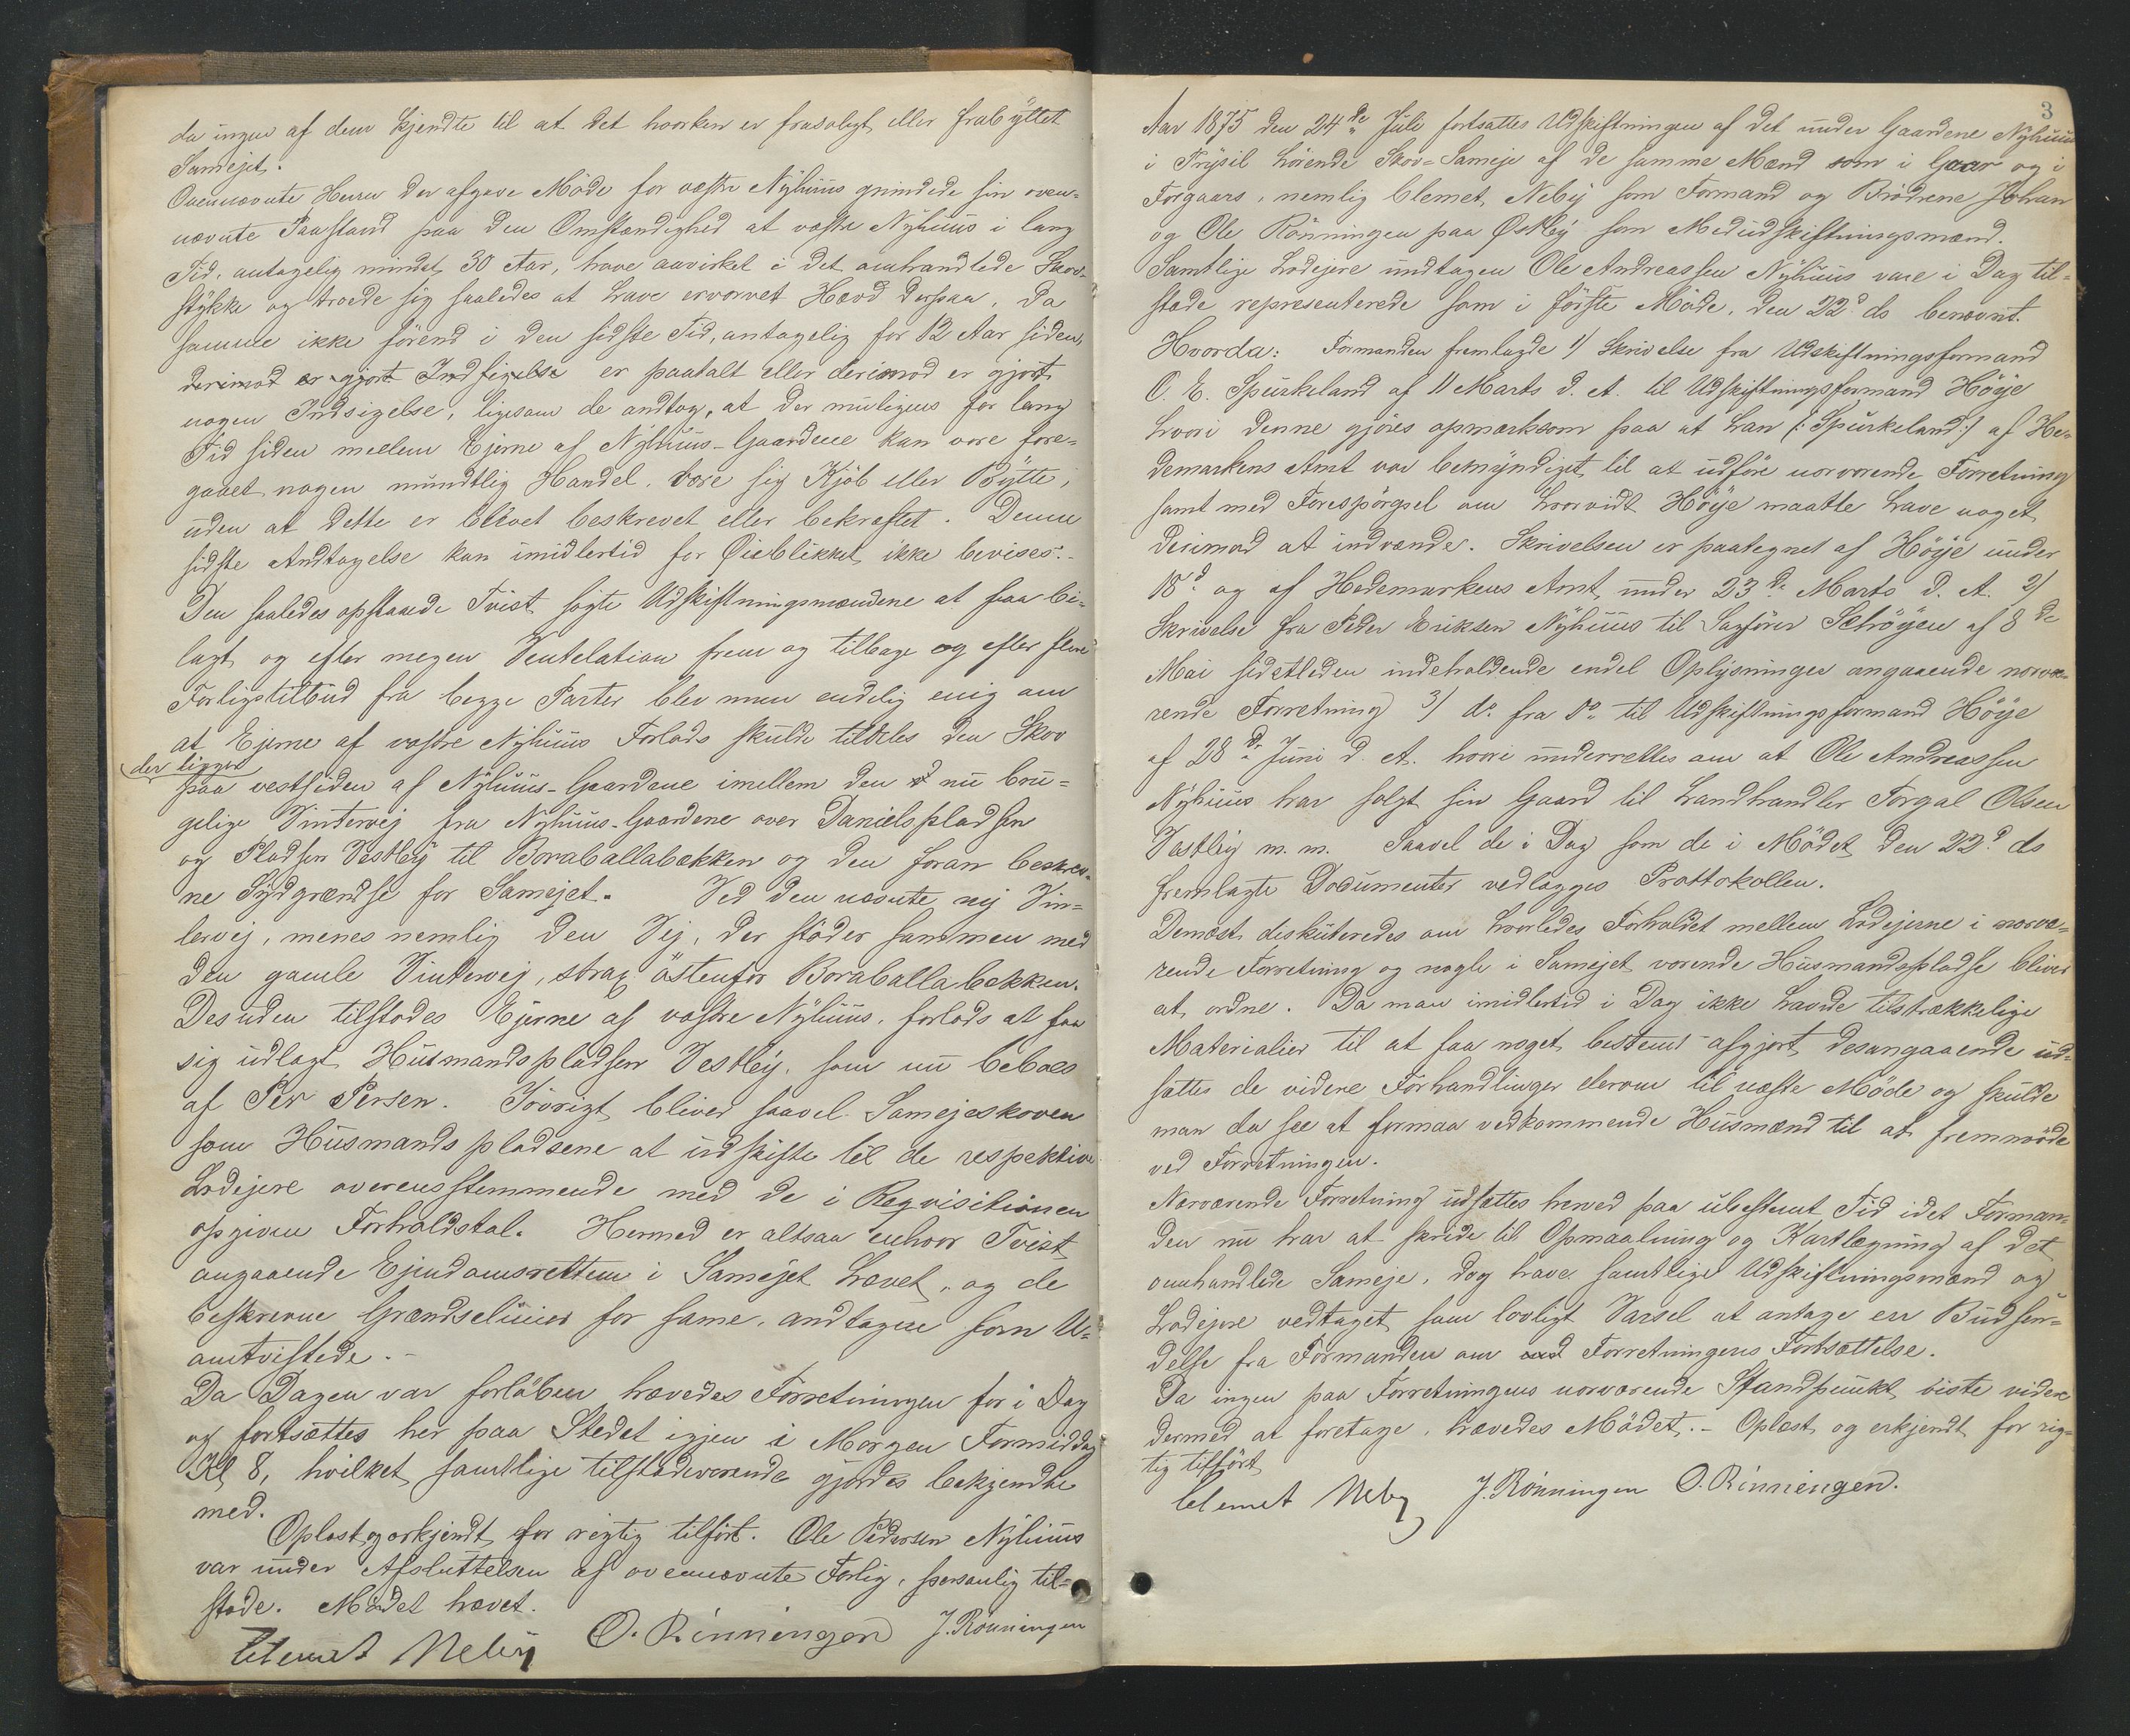 da ingen af dem kjendte til at det hverken er frasolgt eller frabyttet
Samejet.
Ovennævnte Herrer der afgave Møde for vestre Nyhuus grundede sin oven-
nævnte Paastand paa den Omstændighed at vestre Nyhuus i lang
Tid, antagelig mindst 30 Aar, have avvirket i det omhandlede Skov-
stykke og troede sig saaledes at have ervervet Hævd derpaa, da
samme ikke förend i den sidste Tid, antagelig for 12 Aar siden,
derimod er gjort Indsigelse er paatalt eller derimod er gjort
nogen Indsigelse, ligesom de andtog, at der muligens for lang
Tid siden mellem Ejerne af Nyhuus-Gaardene kan være fore-
gaaet nogen mundtlig Handel, være sig Kjöb eller Bytte,
uden at dette er blevet beskrevet eller bekræftet. Denne
sidste Andtagelse kan imidlertid for Øieblikket ikke bevises.-
Den saaledes opstaaede Tvist sögte Udskiftningsmændene at faa bi-
lagt og efter megen Ventelation frem og tilbage og efter flere
Forligstilbud fra begge Parter blev man endelig enig om
at Ejerne af vestre Nyhuus Forlods skulde tildeles den Skov
der ligger
paa vestsiden af Nyhuus-Gaardene imellem den nu bru-
gelige Vintervej fra Nyhuus-Gaardene over Danielspladsen
og Pladsen Vestby til Boraballabækken og den foran beskrev-
ne Sydgrændse for Samejet. Ved den nævnte ny Vin-
tervej, menes nemlig den Vej, der stöder sammen med
den gamle Vintervej, strax östenfor Boraballabekken.
Desuden tilstodes Ejerne af vestre Nyhuus, forlods at faa
sig udlagt Husmandspladsen Vestby, som nu beboes
af Per Persen. Iövrigt bliver saavel Samejeskoven
som Husmandspladsene at udskifte til de respektive
Lodejere overensstemmende med de i Reqvisitionen
opgivne Forholdstal. Hermed er altsaa enhver Tvist
angaaende Ejendomsretten i Samejet hævet, og de
beskrevne Grændselinier for same, andtagne som U-
omtvistede.-
Da Dagen var forlöben hævedes Forretningen for i Dag
og fortsættes her paa Stedet igjen i Morgen Formiddag
Kl 8, hvilket samtlige tilstedeværende gjordes bekjendte
med.
Oplæst og erkjendt for rigtig tilfört. Ole Pedersen Nyhuus
var under Afsluttelsen af ovennævnte Forlig, personlig til-
stede. Mödet hævet.
Clemet Neby O. Rönningen J. Rönningen
3
Aar 1875 den 24de Juli fortsattes Udskiftningen af det under Gaardene Nyhuus
i Trysil hörende Skov-Sameje af de samme Mænd som i Gaar og i
Forgaars, nemlig Clemet Neby som Formand og Brödrene Johan
og Ole Rönningen paa Østby som Medudskiftningsmænd.
Samtlige Lodejere undtagen Ole Andreassen Nyhuus vare i Dag til-
stede representerede som i förste Möde, den 22d ds benævnt.
Hvorda: Formanden fremlagde 1) Skrivelse fra Udskiftningsformand
O. E. Spurkeland af 11 Marts d. A. til Udskiftningsformand Höye
hvori denne gjöres opmærksom paa at han (: Spurkeland :) af He-
demarkens Amt var bemyndiget til at udföre nærværende Forretning
samt med Forespörgsel om hvorvidt Höye maatte have noget
derimod at indvende. Skrivelsen er paategnet af Höye under
18d og af Hedemarkens Amt under 23de Marts d. A. 2)
Skrivelse fra Peder Eriksen Nyhuus til Sagförer Schröyen af 8de
Mai sidstleden indeholdende endel Oplysninger angaaende nærvæ-
rende Forretning 3) do fra do til Udskiftningsformand Höye
af 28de Juni d. A. hvori underrettes om at Ole Andreassen
Nyhuus har solgt sin Gaard til Landhandler Torgal Olsen
Vestby m. m. Saavel de i Dag som de i Mödet den 22d ds
fremlagte Documenter vedlægges Prottokollen.
Dernæst diskuteredes om hvorledes Forholdet mellem Lodejerne i nærvæ-
rende Forretning og nogle i Samejet værende Husmandspladse bliver
at ordne. Da man imidlertid i Dag ikke havde tilstrækkelige
Materialier til at faa noget bestemt afgjort desangaaende ud-
sattes de videre Forhandlinger derom til næste Möde og skulde
man da see at formaa vedkommende Husmænd til at fremmöde
ved Forretningen.
Nærværende Forretning udsattes herved paa ubestemt Tid idet Forman-
den nu har at skride til Opmaalning og Kartlægning af det
omhandlede Sameje, dog have samtlige Udskiftningsmænd og
Lodejere vedtaget som lovligt Varsel at antage en Budsen-
delse fra Formanden om Forretningens Fortsættelse.
Da ingen paa Forretningens nærværende Standpunkt viste videre
dermed at foretage, hævedes Mödet.- Oplæst og erkjendt for rig-
tig tilfört
Clemet Neby J. Rönningen O. Rönningen.